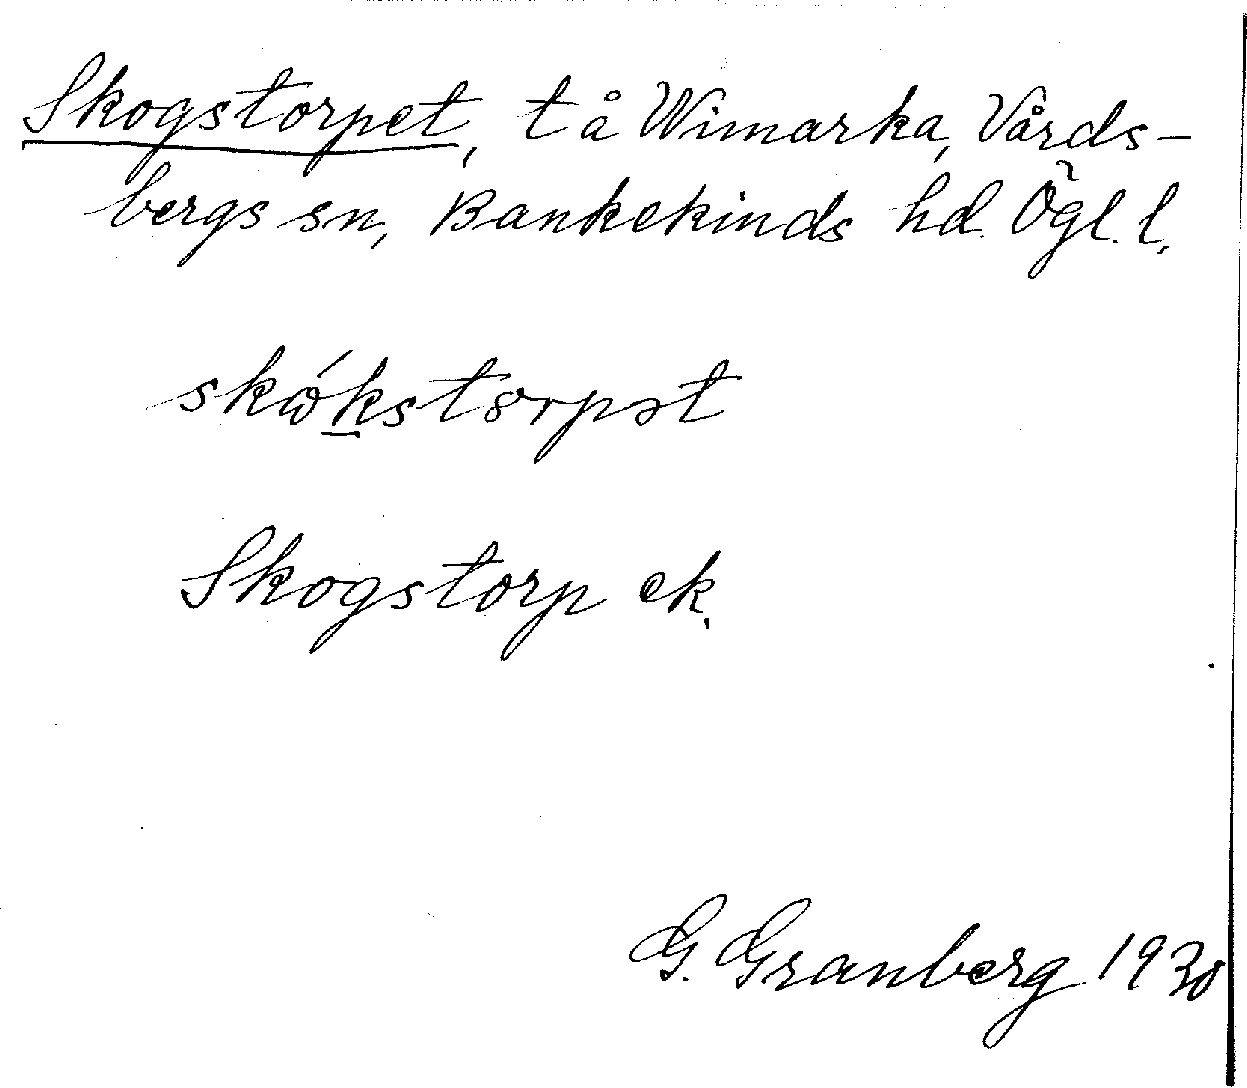 Skogstorpet, t å Wimarka, Vårds-
bergs sn, Bankekinds hd. Ögl. l.
skώkstɤrpət
Skogstorp ek.
G. Granberg 1930